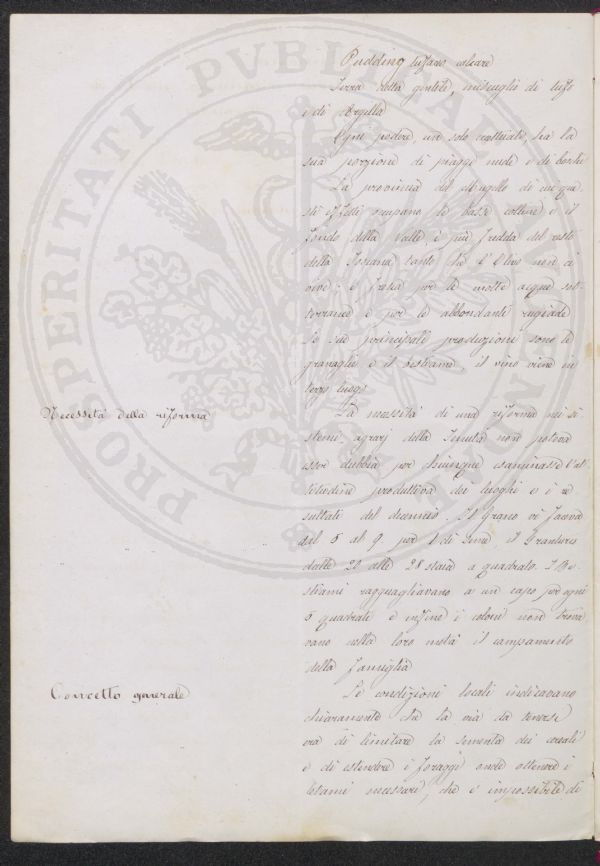 PROSPERITATI PVBLICAE AVGENDAE
Pudding tufaceo calcare
Terra detta gentile, miscuglio di tufo
e di Argilla
Ogni podere, un solo eccettuato, ha la
sua porzione di piagge nude e di boschi
La provincia del Mugello di cui que
sti effetti occupano le basse colline e il
fondo della Valle, è più fredda del resto
della Toscana tanto che l'Olivo non ci
vive - è fresca per le molte acque sot-
terranee e per le abbondanti rugiade
Le sue principali produzioni sono le
granaglie e il bestiame, il vino viene in
terzo luogo
Necessità della riforma
La necessità di una riforma nei si
stemi agrarj della Tenuta non poteva
esser dubbia per chiunque esaminasse l'at
titudine produttiva dei luoghi e i re
sultati del decennio. Il Grano vi faceva
dal 5 al 9 per 1 di seme, il Granturco
dalle 20 alle 28 staia a quadrato. I Be
stiami ragguagliavano a un capo per ogni
5 quadrati e infine i coloni non trova
vano nella loro metà il campamento
della famiglia
Concetto generale
Le condizioni locali indicavano
chiaramente che la via da tenersi
era di limitare la sementa dei cereali
e di estendere i foraggi onde ottenere i
letami necessarj, che è impossibile di